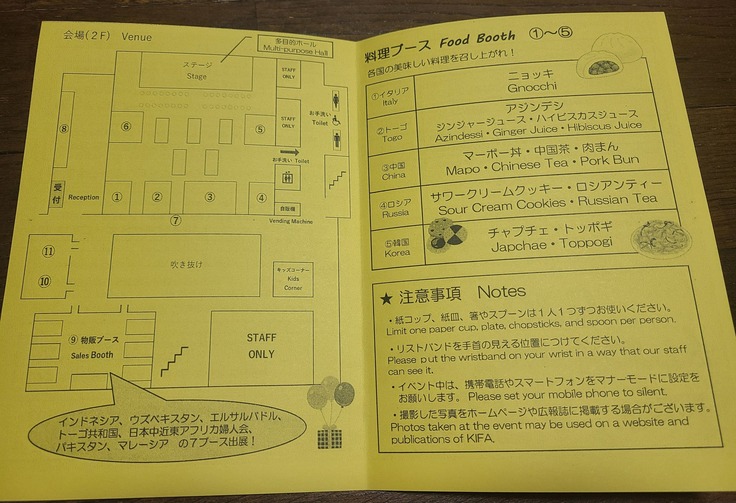 会場(2F) Venue
多目的ホール
Multi-purpose Hall
ステージ
Stage
STAFF
ONLY
STAFF
ONLY
お手洗い
Toilet
⑧
⑥
⑤
お手洗い Toilet
受付
Reception
①
②
③
④
自販機
Vending Machine
⑦
⑪
⑩
吹き抜け
キッズコーナー
Kids
Corner
⑨ 物販ブース
Sales Booth
STAFF
ONLY
インドネシア、ウズベキスタン、エルサルバドル、
トーゴ共和国、日本中近東アフリカ婦人会、
パキスタン、マレーシア の7ブース出展！
料理ブース Food Booth ①～⑤
各国の美味しい料理を召し上がれ！
①イタリア
Italy
ニョッキ
Gnocchi
②トーゴ
Togo
アジンデシ
ジンジャージュース・ハイビスカスジュース
Azindessi・Ginger Juice・Hibiscus Juice
③中国
China
マーボー丼・中国茶・肉まん
Mapo・Chinese Tea・Pork Bun
④ロシア
Russia
サワークリームクッキー・ロシアンティー
Sour Cream Cookies・Russian Tea
⑤韓国
Korea
チャプチェ・トッポギ
Japchae・Toppogi
★ 注意事項 Notes
・紙コップ、紙皿、箸やスプーンは１人１つずつお使いください。
Limit one paper cup, plate, chopsticks, and spoon per person.
・リストバンドを手首の見える位置につけてください。
Please put the wristband on your wrist in a way that our staff
can see it.
・イベント中は、携帯電話やスマートフォンをマナーモードに設定を
お願いします。Please set your mobile phone to silent.
・撮影した写真をホームページや広報誌に掲載する場合がございます。
Photos taken at the event may be used on a website and
publications of KIFA.